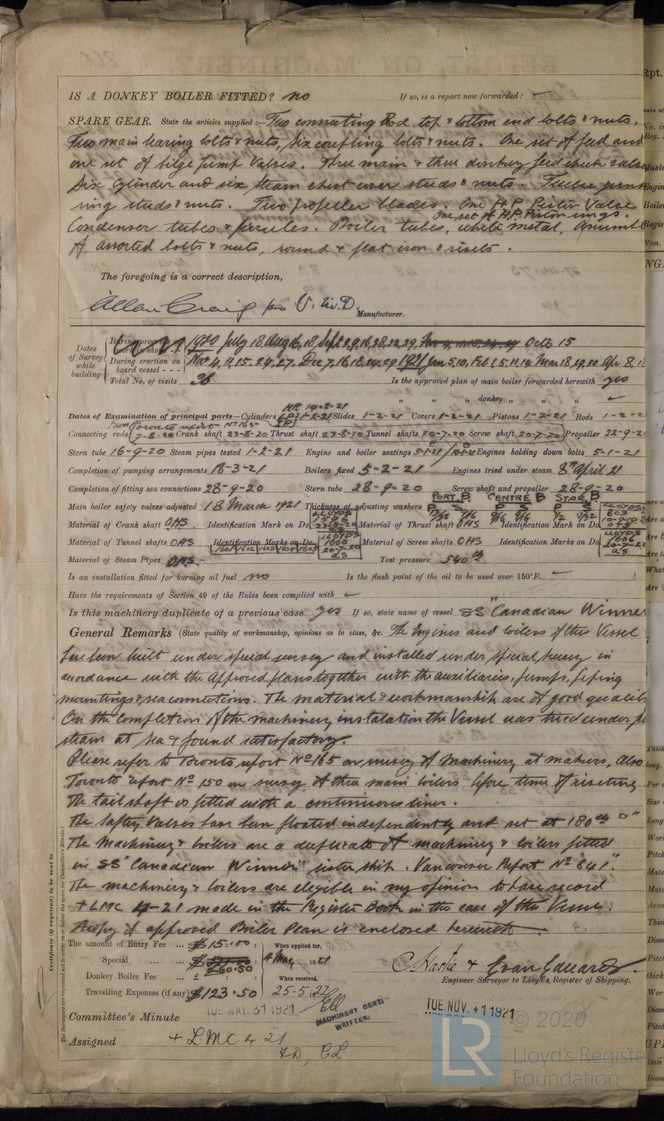 IS A DONKEY BOILER FITTED? no If so, is a report now forwarded? -
SPARE GEAR. State the articles supplied:- Two connecting Rod top & bottom end bolts & nuts.
Two main bearing bolts & nuts, Six coupling bolts & nuts. One set of feed and
one set of bilge pump Valves. Three main & three donkey feed check valves
Six Cylinder and six steam chest cover studs & nuts. Twelve
ring studs & nuts. Two propeller blades. One H.P. Piston Valve
One set of H.P. Piston rings.
Condenser tubes & ferrules. Boiler tubes, white metal,
of assorted bolts & nuts, round & flat iron & rivets.
The foregoing is a correct description,
Allan Craig Manufacturer.
Dates of Survey while building
1920 July 18, Aug Oct 15
During erection on board vessel - - - Nov 4, 11, 15, 24, 27, Dec 7, 16, 18, 1921 Jan 5, 10, Feb 1, 5, 11, 14 Mar 18, 19, 30 Apr 8,
Total No. of visits 36 Is the approved plan of main boiler forwarded herewith yes
" " " donkey " " "
Dates of Examination of principal parts—Cylinders HP 14-2-21 1-2-21 Slides 1-2-21 Covers 1-2-21 Pistons 1-2-21 Rods 1-2-2
From Toronto report No 165
Connecting rods 7-8-20 Crank shaft 23-8-20 Thrust shaft 23-8-20 Tunnel shafts 20-7-20 Screw shaft 20-7-20 Propeller 22-9-2
Stern tube 16-9-20 Steam pipes tested 1-2-21 Engine and boiler seatings 5-1-21 Engines holding down bolts 5-1-21
Completion of pumping arrangements 18-3-21 Boilers fixed 5-2-21 Engines tried under steam 8th April 21
Completion of fitting sea connections 28-9-20 Stern tube 28-9-20 Screw shaft and propeller 28-9-20
PORT B CENTRE B STAR B
Main boiler safety valves adjusted 18 March 1921 Thickness of adjusting washers P S P S P S
Material of Crank shaft OHS Identification Mark on Do. Material of Thrust shaft OHS Identification Mark on Do.
Material of Tunnel shafts OHS Identification Marks on Do. Material of Screw shafts OHS Identification Marks on Do.
Material of Steam Pipes OHS. Test pressure 540 lb
Is an installation fitted for burning oil fuel no Is the flash point of the oil to be used over 150°F. -
Have the requirements of Section 49 of the Rules been complied with -
Is this machinery duplicate of a previous case yes If so, state name of vessel SS "Canadian Winner
General Remarks (State quality of workmanship, opinions as to class, &c. The Engines and boilers of this Vessel
have been built under special survey and installed under special survey in
accordance with the Approved plans together with the auxiliaries, pumps, piping
mountings & sea connections. The material & workmanship are of good
On the completion of the machinery instalation the Vessel was tried under
steam at sea & found satisfactory.
Please refer to Toronto report No 165 on survey of Machinery at makers, Also
Toronto report No 150 on survey of three main boilers before time of riveting
The tail shaft is fitted with a continuous liner.
The Safety Valves have been floated independently and set at 180 lb □"
The Machinery & boilers are a duplicate of machinery & boilers fitted
in SS "Canadian Winner" sister ship. Vancouver Report No "841".
The machinery & boilers are eligible in my opinion to have record
+ LMC 4-21 made in the Register Book in the case of this Vessel.
A copy of approved Boiler Plan is enclosed herewith
The amount of Entry Fee ... $15.00 : When applied for,
Special ... ... 4 May 1921
Donkey Boiler Fee ... £ : : When received,
Travelling Expenses (if any) $123.50 25-5-21
Evan Edwards.
Engineer Surveyor to Lloyd's Register of Shipping.
Committee's Minute TUE. MAY. 31 1921 MACHINERY CERT. WRITTEN. TUE. NOV. 1 1921
Assigned + LMC 4 21
FD, CL
© 2020
LR Lloyd's Register
Foundation